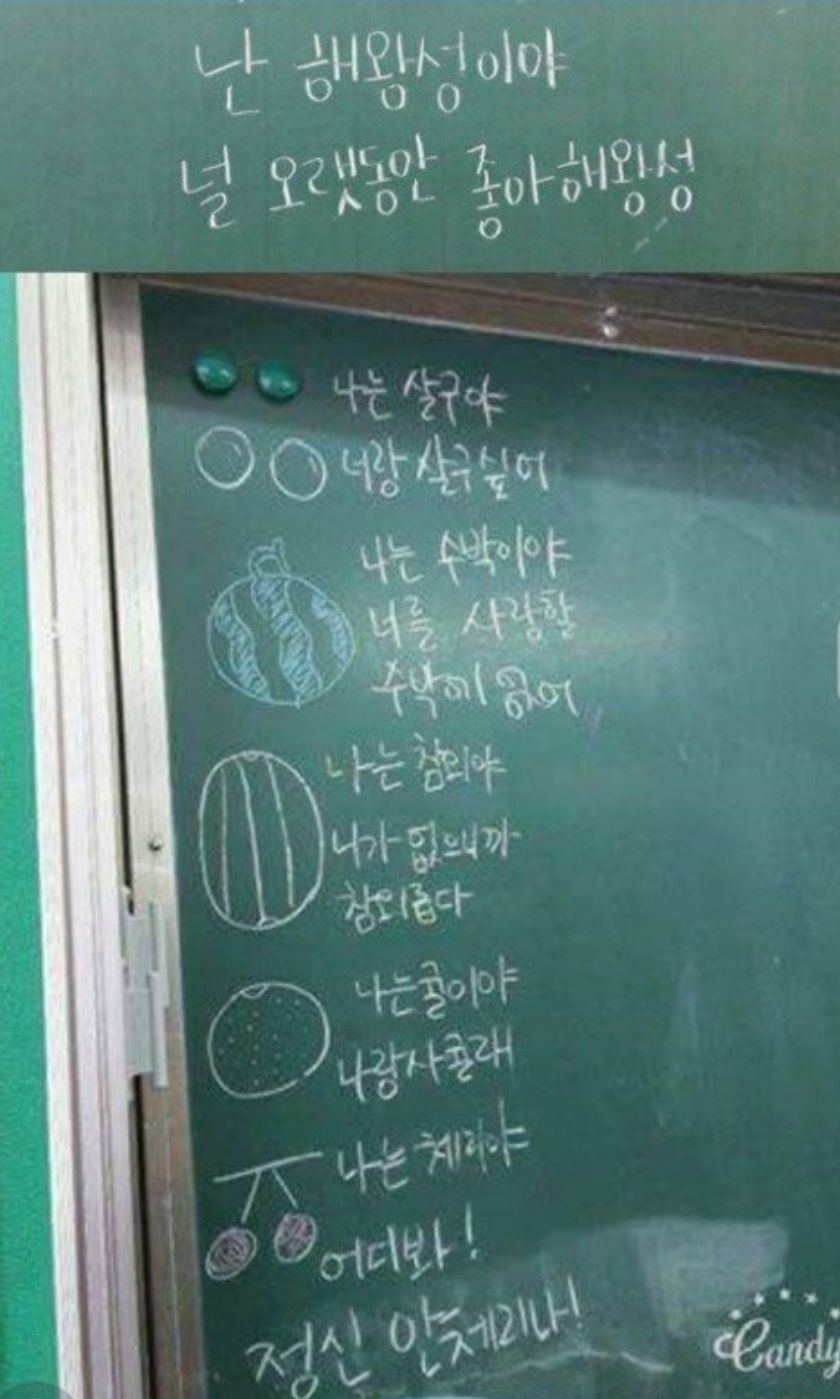 난 해왕성이야
널 오랫동안 좋아해왕성
나는 살구야
너랑 살구싶어
나는 수박이야
너를 사랑할
수박께 없어
나는 참외야
니가 없으니까
참외롭다
나는귤이야
나랑사귤래
나는 체리야
어디봐!
정신 안체리나!
Candy